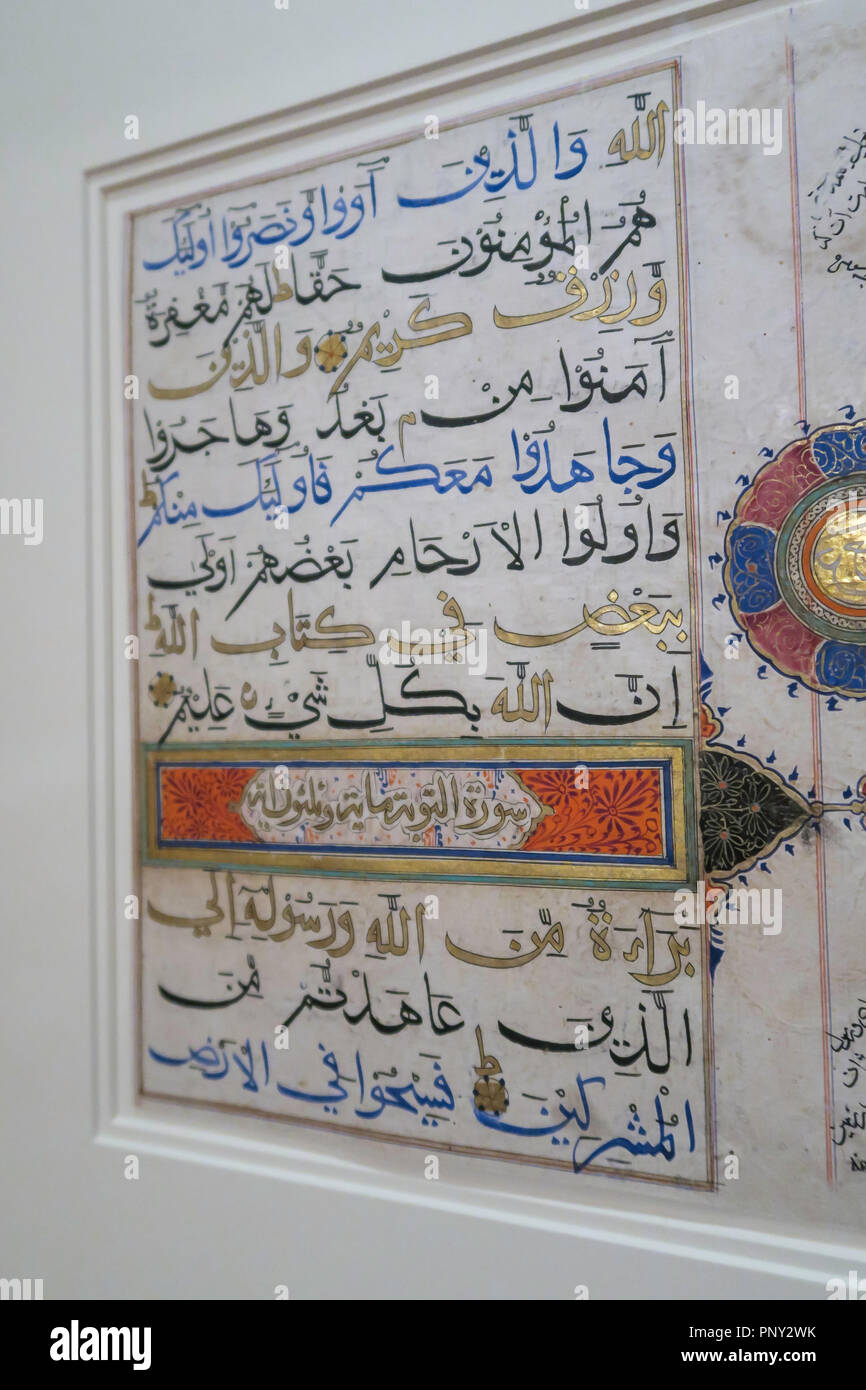 الله وَالَّذِينَ آوَوْا وَنَصَرُوا أُولَٰئِكَ
هُمُ الْمُؤْمِنُونَ حَقًّا ط لَهُمْ مَغْفِرَةٌ
وَرِزْقٌ كَرِيمٌ وَالَّذِينَ
آمَنُوا مِنْ م بَعْدُ وَهَاجَرُوا
وَجَاهَدُوا مَعَكُمْ فَأُولَٰئِكَ مِنْكُمْ ط
وَأُولُوا الْأَرْحَامِ بَعْضُهُمْ أَوْلَىٰ
بِبَعْضٍ فِي كِتَابِ اللَّهِ ط
إِنَّ اللَّهَ بِكُلِّ شَيْءٍ عَلِيمٌ
سورة التوبة مایة وثلثون ایة
بَرَاءَةٌ مِنَ اللَّهِ وَرَسُولِهِ إِلَى
الَّذِينَ عَاهَدْتُمْ مِنَ
الْمُشْرِكِينَ ط فَسِيحُوا فِي الْأَرْضِ
alamy
Image ID: PNY2WK
www.alamy.com